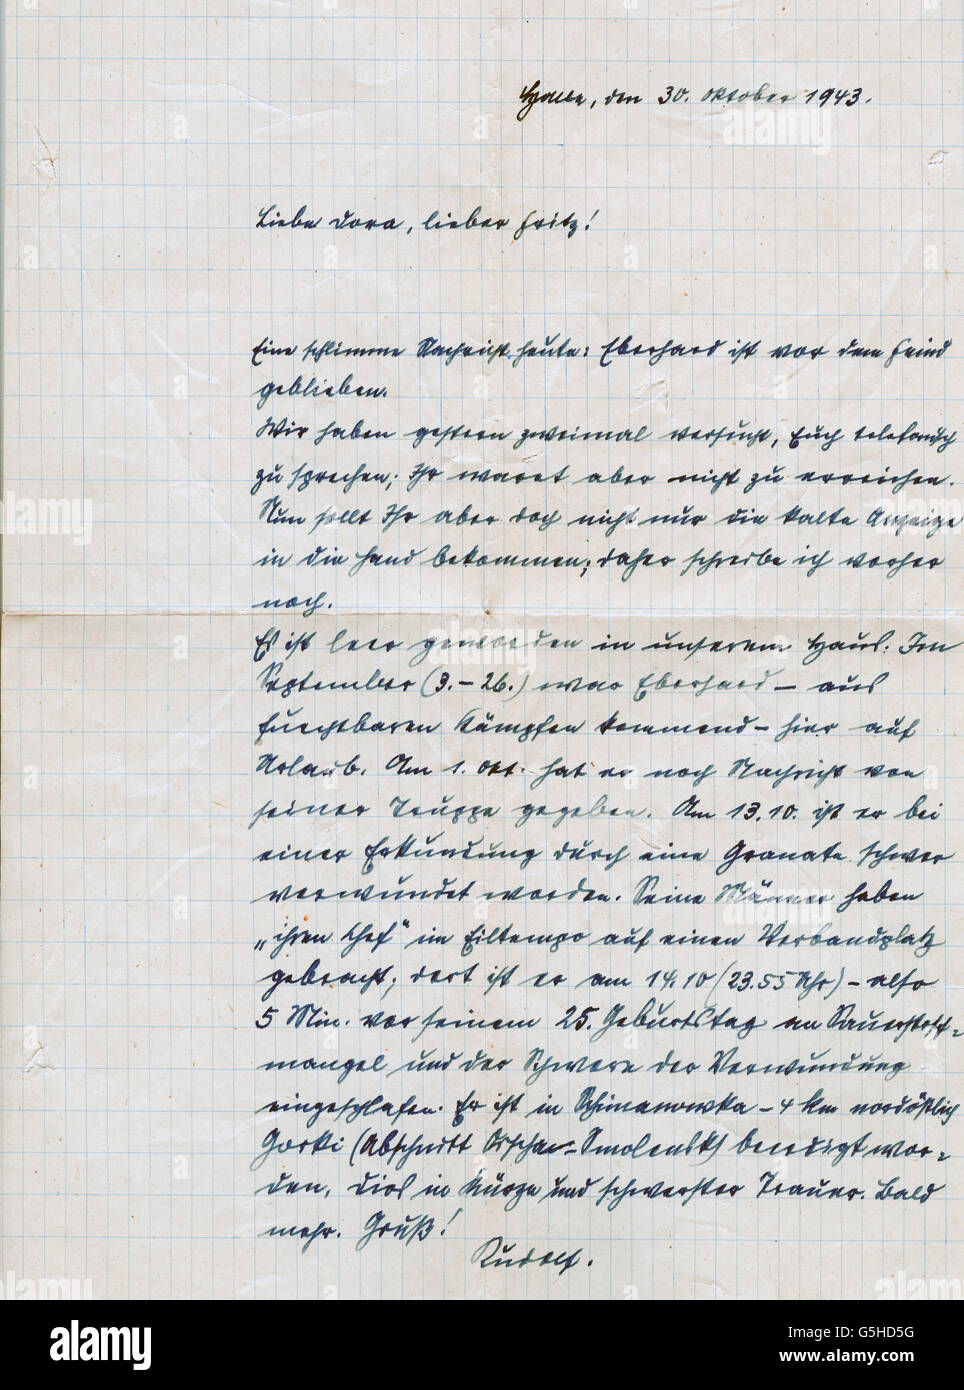 Halle, den 30. Oktober 1943.
Liebe Dora, lieber Fritz!
Eine schlimme Nachricht heute: Eberhard ist vor dem Feind
geblieben.
Wir haben gestern zweimal versucht, Euch telefonisch
zu sprechen; Ihr waret aber nicht zu erreichen.
Nun sollt Ihr aber doch nicht nur die kalte Anzeige
in die Hand bekommen; daher schreibe ich vorher
noch.
Es ist leer geworden in unserem Haus. Im
September (3.-26.) war Eberhard - aus
furchtbaren Kämpfen kommend - hier auf
Urlaub. Am 1. Okt. hat er noch Nachricht von
seiner Truppe gegeben. Am 13.10. ist er bei
einer Erkundung durch eine Granate schwer
verwundet worden. Seine Männer haben
„ihren Chef“ im Eiltempo auf einen Verbandplatz
gebracht; dort ist er am 14.10 (23.55 Uhr) - also
5 Min. vor seinem 25. Geburtstag an Sauerstoff=
mangel und der Schwere der Verwundung
eingeschlafen. Er ist in Schimanowka - 4 km nordöstlich
Gorki (Abschnitt Orscha-Smolensk) beerdigt wor=
den. Dies in Kürze und schwerster Trauer. Bald
mehr. Gruß!
Rudolf.
alamy
Image ID: G5HD5G
www.alamy.com